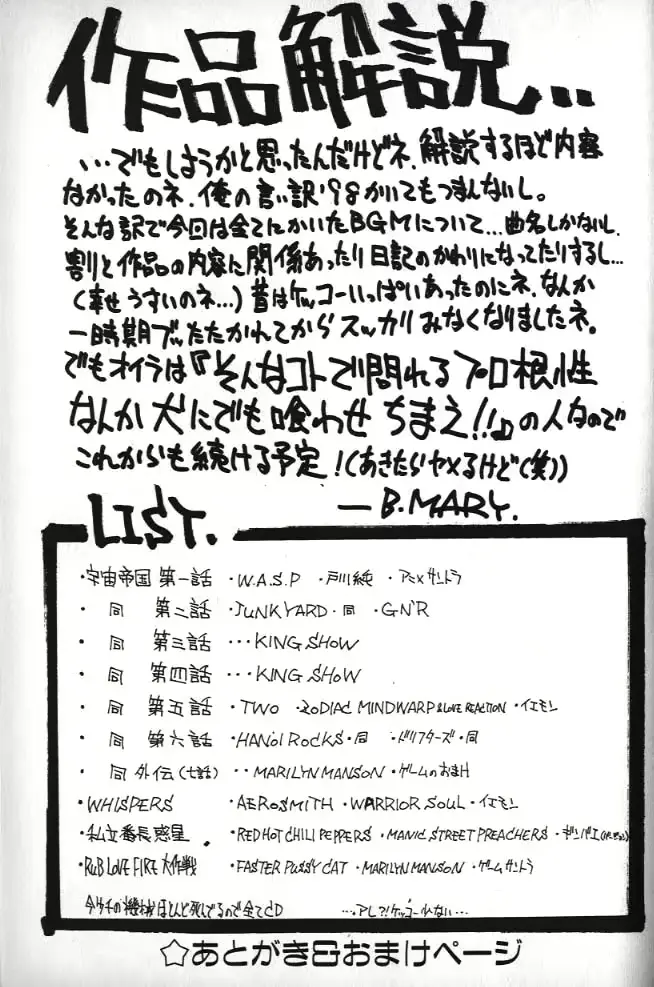 作品解説..
...でもしようかと思ったんだけどネ、解説するほど内容
なかったのネ、俺の言い訳'98かいてもつまんないし。
そんな訳で今回は全てにかいたBGMについて...曲名しかないし、
割と作品の内容に関係あったり日記のかわりになってたりするし...
(幸せうすいのネ...)昔はケッコーいっぱいあったのにネ、なんか
一時期ブッたたかれてからスッカリみなくなりましたネ。
でもオイラは『そんなコトで問れるプロ根性
なんか犬にでも喰わせちまえ!!』の人なので
これからも続ける予定!(あきたらヤメるけど(笑))
―B.MARY.
LIST.
・宇宙帝国 第一話 ・W.A.S.P ・戸川純 ・アニメサントラ
・ 同 第二話 ・JUNKYARD・同 ・GN'R
・ 同 第三話 ・・・KING SHOW
・ 同 第四話 ・・・KING SHOW
・ 同 第五話 ・TWO ・ZODIAC MINDWARP & LOVE REACTION ・イエモン
・ 同 第六話 ・HANOI ROCKS・同 ・ドリフターズ・同
・ 同 外伝(七話) ・・MARILYN MANSON ・ゲームのおまけ
・WHISPERS ・AEROSMITH ・WARRIOR SOUL ・イエモン
・私立番長惑星. ・RED HOT CHILI PEPPERS ・MANIC STREET PREACHERS
・RUB LOVE FIRE 大作戦 ・FASTER PUSSY CAT ・MARILYN MANSON ・ゲームサントラ
今ウチの機械ほとんど死んでるので全てCD ...アレ?!ケッコー少ない...
☆あとがき&おまけページ